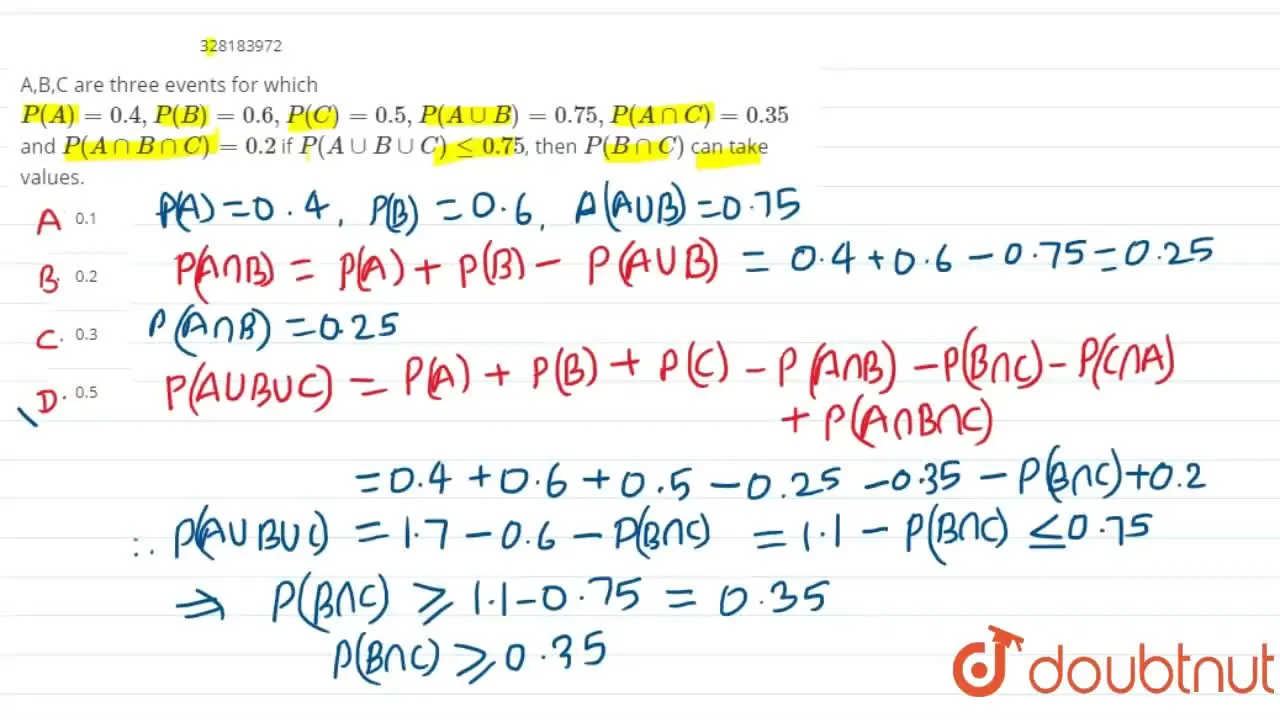 328183972
A,B,C are three events for which
P(A) = 0.4, P(B) = 0.6, P(C) = 0.5, P(A ∪ B) = 0.75, P(A ∩ C) = 0.35
and P(A ∩ B ∩ C) = 0.2 if P(A ∪ B ∪ C) ≤ 0.75, then P(B ∩ C) can take
values.
P(A) = 0.4, P(B) = 0.6, P(A∪B) = 0.75
A 0.1
P(A∩B) = P(A) + P(B) - P(A∪B) = 0.4 + 0.6 - 0.75 = 0.25
B. 0.2
P(A∩B) = 0.25
C. 0.3
P(A∪B∪C) = P(A) + P(B) + P(C) - P(A∩B) - P(B∩C) - P(C∩A)
D. 0.5
+ P(A∩B∩C)
= 0.4 + 0.6 + 0.5 - 0.25 - 0.35 - P(B∩C) + 0.2
∴ P(A∪B∪C) = 1.7 - 0.6 - P(B∩C) = 1.1 - P(B∩C) ≤ 0.75
⇒ P(B∩C) ≥ 1.1 - 0.75 = 0.35
P(B∩C) ≥ 0.35
doubtnut